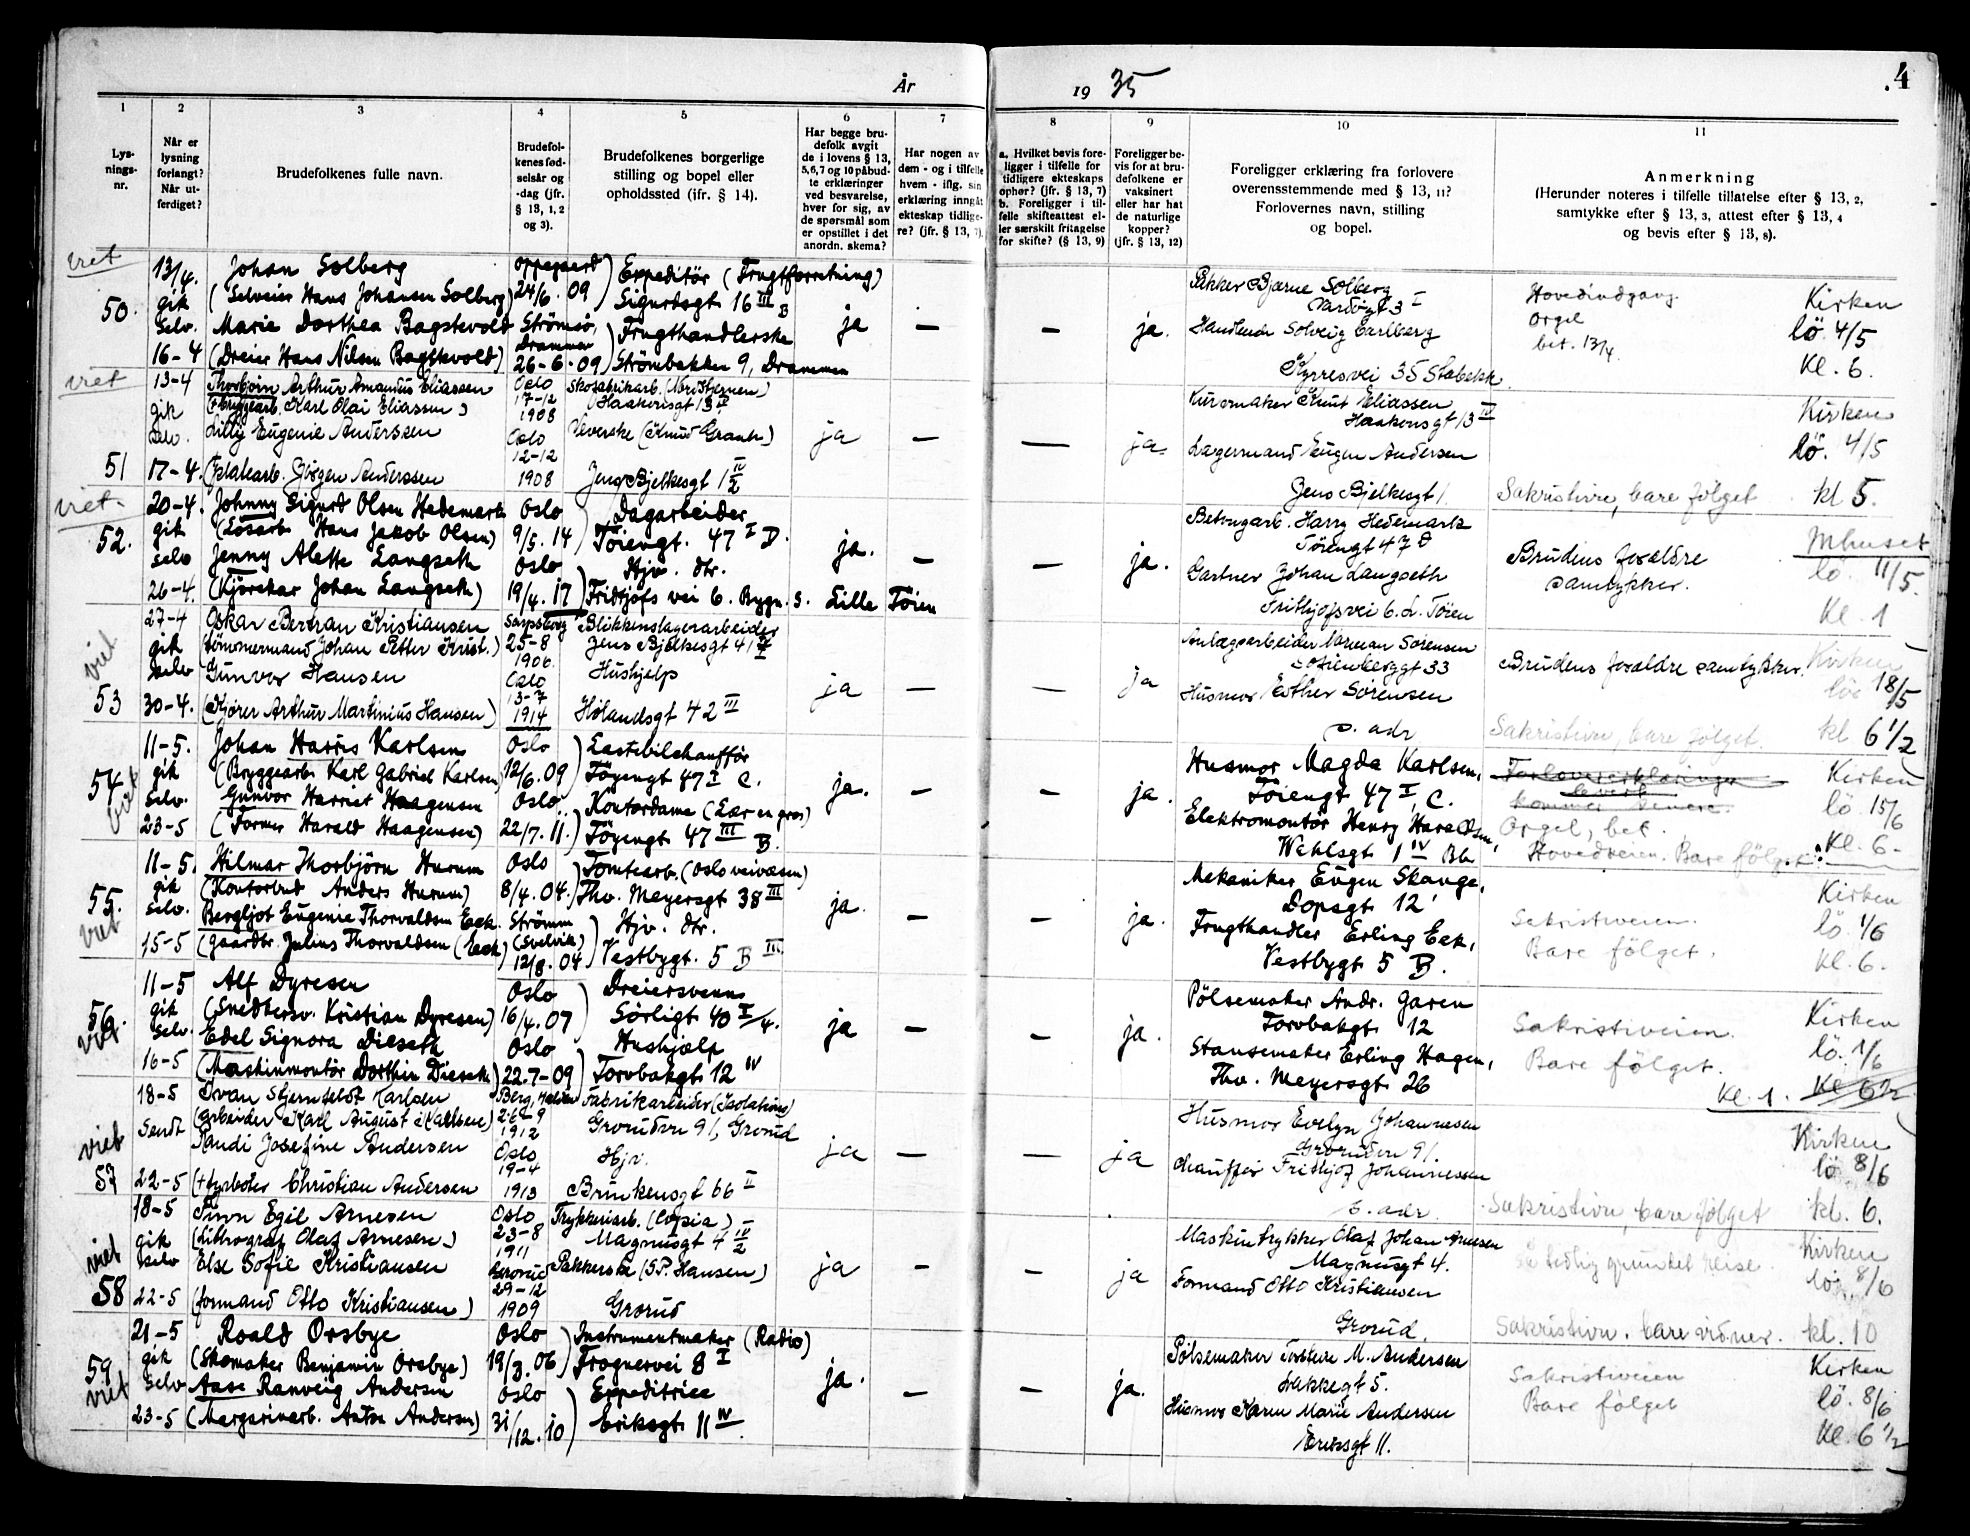 År 1935
4
1 2 3 4 5 6 7 8 9 10 11
Lysningsnr.
Når er lysning forlangt? Når utferdiget?
Brudefolkenes fulle navn.
Brudefolkenes fødselsår og -dag (jfr. § 13, 1, 2 og 3).
Brudefolkenes borgerlige stilling og bopel eller opholdssted (ifr. § 14).
Har begge brudefolk avgit de i lovens § 13, 5, 6, 7 og 10 påbudte erklæringer ved besvarelse, hver for sig, av de spørsmål som er opstillet i det anordn. skema?
Har nogen av dem - og i tilfelle hvem - iflg. sin erklæring inngått ekteskap tidligere? (jfr. § 13, 7).
a. Hvilket bevis foreligger i tilfelle for tidligere ekteskaps ophør? (jfr. § 13, 7) b. Foreligger i tilfelle skifteattest eller særskilt fritagelse for skifte? (§ 13, 9)
Foreligger bevis for at brudefolkene er vaksinert eller har hat de naturlige kopper? (jfr. § 13, 12)
Foreligger erklæring fra forlovere overensstemmende med § 13, 11? Forlovernes navn, stilling og bopel.
Anmerkning
(Herunder noteres i tilfelle tillatelse efter § 13, 2, samtykke efter § 13, 3, attest efter § 13, 4 og bevis efter § 13, 8).
viet
50.
13/4. gik selv. 16-4
Johan Solberg
(Selveier Hans Johansen Solberg)
Marie Dorthea Bagstevold
(Dreier Hans Nilsen Bagstevold)
Oppegaard 24/6. 09
Strömsö, Drammen 26-6-09
Expeditör (Frugtforretning)
Sigurdsgt 16 III B
Frugthandlerske
Strömbakken 9, Drammen
ja — — ja.
Pakker Bjarne Solberg
Vardögt 3 I
Handlende Solveig Carlberg
Kyrresvei 35 Stabekk
Hovedindgang
Orgel
bet. 13/4.
Kirken
lö. 4/5
Kl. 6.
viet
51
13-4 gik selv. 17-4.
Thorbjörn Arthur Amandus Eliassen
(Bryggearb. Karl Olai Eliassen)
Lilly Eugenie Anderssen
(platearb. Jörgen Anderssen
Oslo 17-12 1908
Oslo 12-12 1908
Skofabrikarb. (Nordstjernen)
Haakonsgt 13 IV
Veverske (Knud Graah)
Jens Bjelkesgt 1 IV/2
ja — — ja.
Kurvmaker Knut Eliassen
Haakonsgt 13 IV
Lagermand Eugen Andersen
Jens Bjelkesgt 1
Sakristivn, bare følget
Kirken
lö. 4/5
kl 5.
viet.
52.
20-4. gik selv 26-4.
Johnny Sigurd Olsen Hedemark
(Lösarb. Hans Jakob Olsen)
Jenny Alette Langseth
(Kjörekar Johan Langseth)
Oslo 9/5. 14
Oslo 19/4. 17
Dagarbeider
Töiengt. 47 I D.
Hjv. dtr.
Fridtjofs vei 6. Bygn. 3. Lille Töien
ja. — — ja.
Betongarb. Harry Hedemark
Töiengt 47 D
Gartner Johan Langseth
Frithjofsvei 6. L. Töien
Brudens foreldre samtykker.
Mhuset
lö. 11/5.
Kl. 1
viet
53
27-4 gik selv 30-4.
Oskar Bertran Kristiansen
(tömmermand Johan Petter Krist.)
Gunvor Hansen
(Kjører Arthur Martinius Hansen)
Sarpsborg 25-8 1906.
Oslo 13-7 1914
Blikkenslagerarbeider
Jens Bjelkesgt 41
Hushjelp
Hølandsgt 42 III
ja — — ja
Anlægsarbeider Norman Sørensen
Sofienberggt 33
Husmor Esther Sørensen
s. adr
Brudens foreldre samtykker.
Sakristivn, bare følget.
Kirken
lö. 18/5
kl 6 1/2
54
viet
11-5. gik selv. 23-5
Johan Harris Karlsen
(Bryggearb. Karl Gabriel Karlsen)
Gunvor Harriet Haagensen
(Former Harald Haagensen)
Oslo 12/6. 09
Oslo 22/7. 11.
Lastebilchaufför
Töyengt 47 I C.
Kontordame (Lær en gros)
Töyengt 47 III B.
ja. — — ja.
Husmor Magda Karlsen,
Töiengt 47 I, C.
Elektromontör Henry Haraldsen,
Wehlsgt 1 IV
Forlovererklæringer
kommer senere.
Orgel, bet.
Hovedveien. Bare fölget.
Kirken
lö 15/6
Kl. 6.
55.
viet
11-5. gik selv. 15-5
Hilmar Thorbjörn Hurum
(Kontorbud Anders Hurum)
Bergljot Eugenie Thorvaldsen Eek.
(gaardbr. Julius Thorvaldsen (Eek)
Oslo 8/4. 04.
Strömm (Svelvik) 12/8. 04
Tomtearb. (Oslo veivæsen)
Thv. Meyersgt 38 III
Hjv. dtr.
Vestbygt. 5 B III.
ja. — — ja.
Mekaniker Eugen Skauge,
Dopsgt 12
Frugthandler Erling Eek,
Vestbygt 5 B.
Sakristiveien.
Bare fölget.
Kirken
lö. 1/6
Kl. 6.
56.
viet
11-5 gik selv. 16-5
Alf Dyresen
(Snedkersv. Kristian Dyresen)
Edel Signora Dieseth
(Maskinmontör Dorthin Dieseth)
Oslo 16/4. 07
Oslo 22.7-09
Dreiersvenn
Sörligt 40 I/4.
Hushjælp
Torvbakgt 12 IV
ja — — ja.
Pölsemaker Andr. Garen
Torvbakgt 12
Stansemaker Erling Hagen,
Thv. Meyersgt 26
Sakristiveien.
Bare fölget.
Kirken
lö. 1/6
Kl. 1. Kl 6 1/2
viet
57
18-5 Sendt 22-5
Ivan Stjernfeldt Karlsen
(arbeider Karl August Karlsen)
Randi Josefine Andersen
(+ fyrbøter Christian Andersen
Berg, Halden 26-9 1912
Oslo 19-4 1913
Fabrikarbeider (Isolation)
Grorudvn 91, Grorud
Hjv.
Brinkensgt 66 II
ja — — ja
Husmor Evelyn Johannesen
Grorudvn 91.
Chauffør Frithjof Johannessen
s. adr.
Sakristivn, bare følget
Kirken
lö 8/6
kl. 6.
viet
58
18-5 gik selv 22-5
Finn Egil Arnesen
(Lithograf Olaf Arnesen)
Else Sofie Kristiansen
(formand Otto Kristiansen)
Oslo 23-8 1911
Grorud 29-12 1909
Trykkeriarb. (Copia)
Magnusgt 4 IV/2
Pakkerske (S.P. Hansen)
Grorud
ja — — ja
Maskintrykker Olaf Johan Arnesen
Magnusgt 4.
Formand Otto Kristiansen
Grorud.
Så tidlig grunnet reise.
Sakristivn. bare vidner.
Kirken
lö. 8/6
kl. 10
59
viet
21-5 gik selv 23-5
Roald Orsbye
(Skomaker Benjamin Orsbye)
Aase Ranveig Andersen
(Margarinarb. Anton Andersen)
Oslo 19/3. 06
Oslo 31/12. 10
Instrumentmaker (Radio)
Frognervei 8 I
Expeditrice
Eriksgt. 11 IV.
ja. — — ja.
Pølsemaker Torstein M. Andersen
Lakkegt 5.
Husmor Karen Marie Andersen
Eriksgt 11.
Sakristiveien
Bare fölget
Kirken
lö. 8/6
Kl. 6 1/2